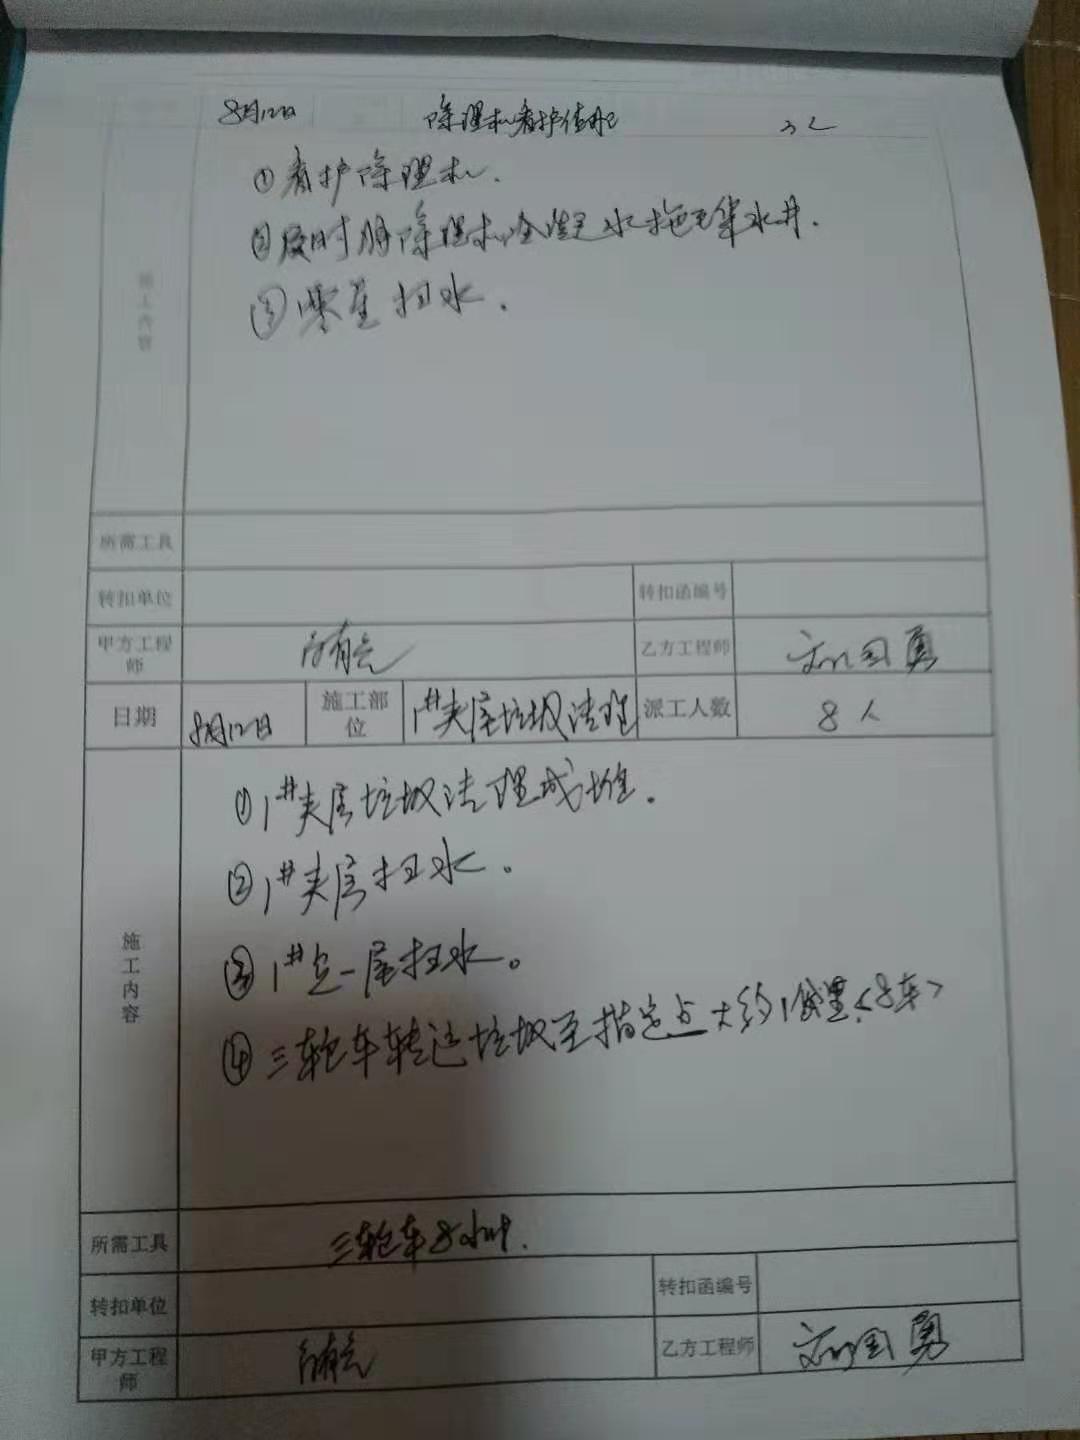 8月12日 除湿机看护值班 3人
①看护除湿机.
②及时将除湿机冷凝水拖至集水井.
③零星扫水.
施工内容
所需工具
转扣单位 转扣函编号
甲方工程师 乙方工程师 刘国勇
日期 8月12日 施工部位 1#夹层垃圾清理 派工人数 8人
①1#夹层垃圾清理成堆.
②1#夹层扫水。
③1# 一层扫水。
④三轮车转运垃圾至指定点大约1公里<8车>
施工内容
所需工具 三轮车8小时.
转扣单位 转扣函编号
甲方工程师 乙方工程师 刘国勇